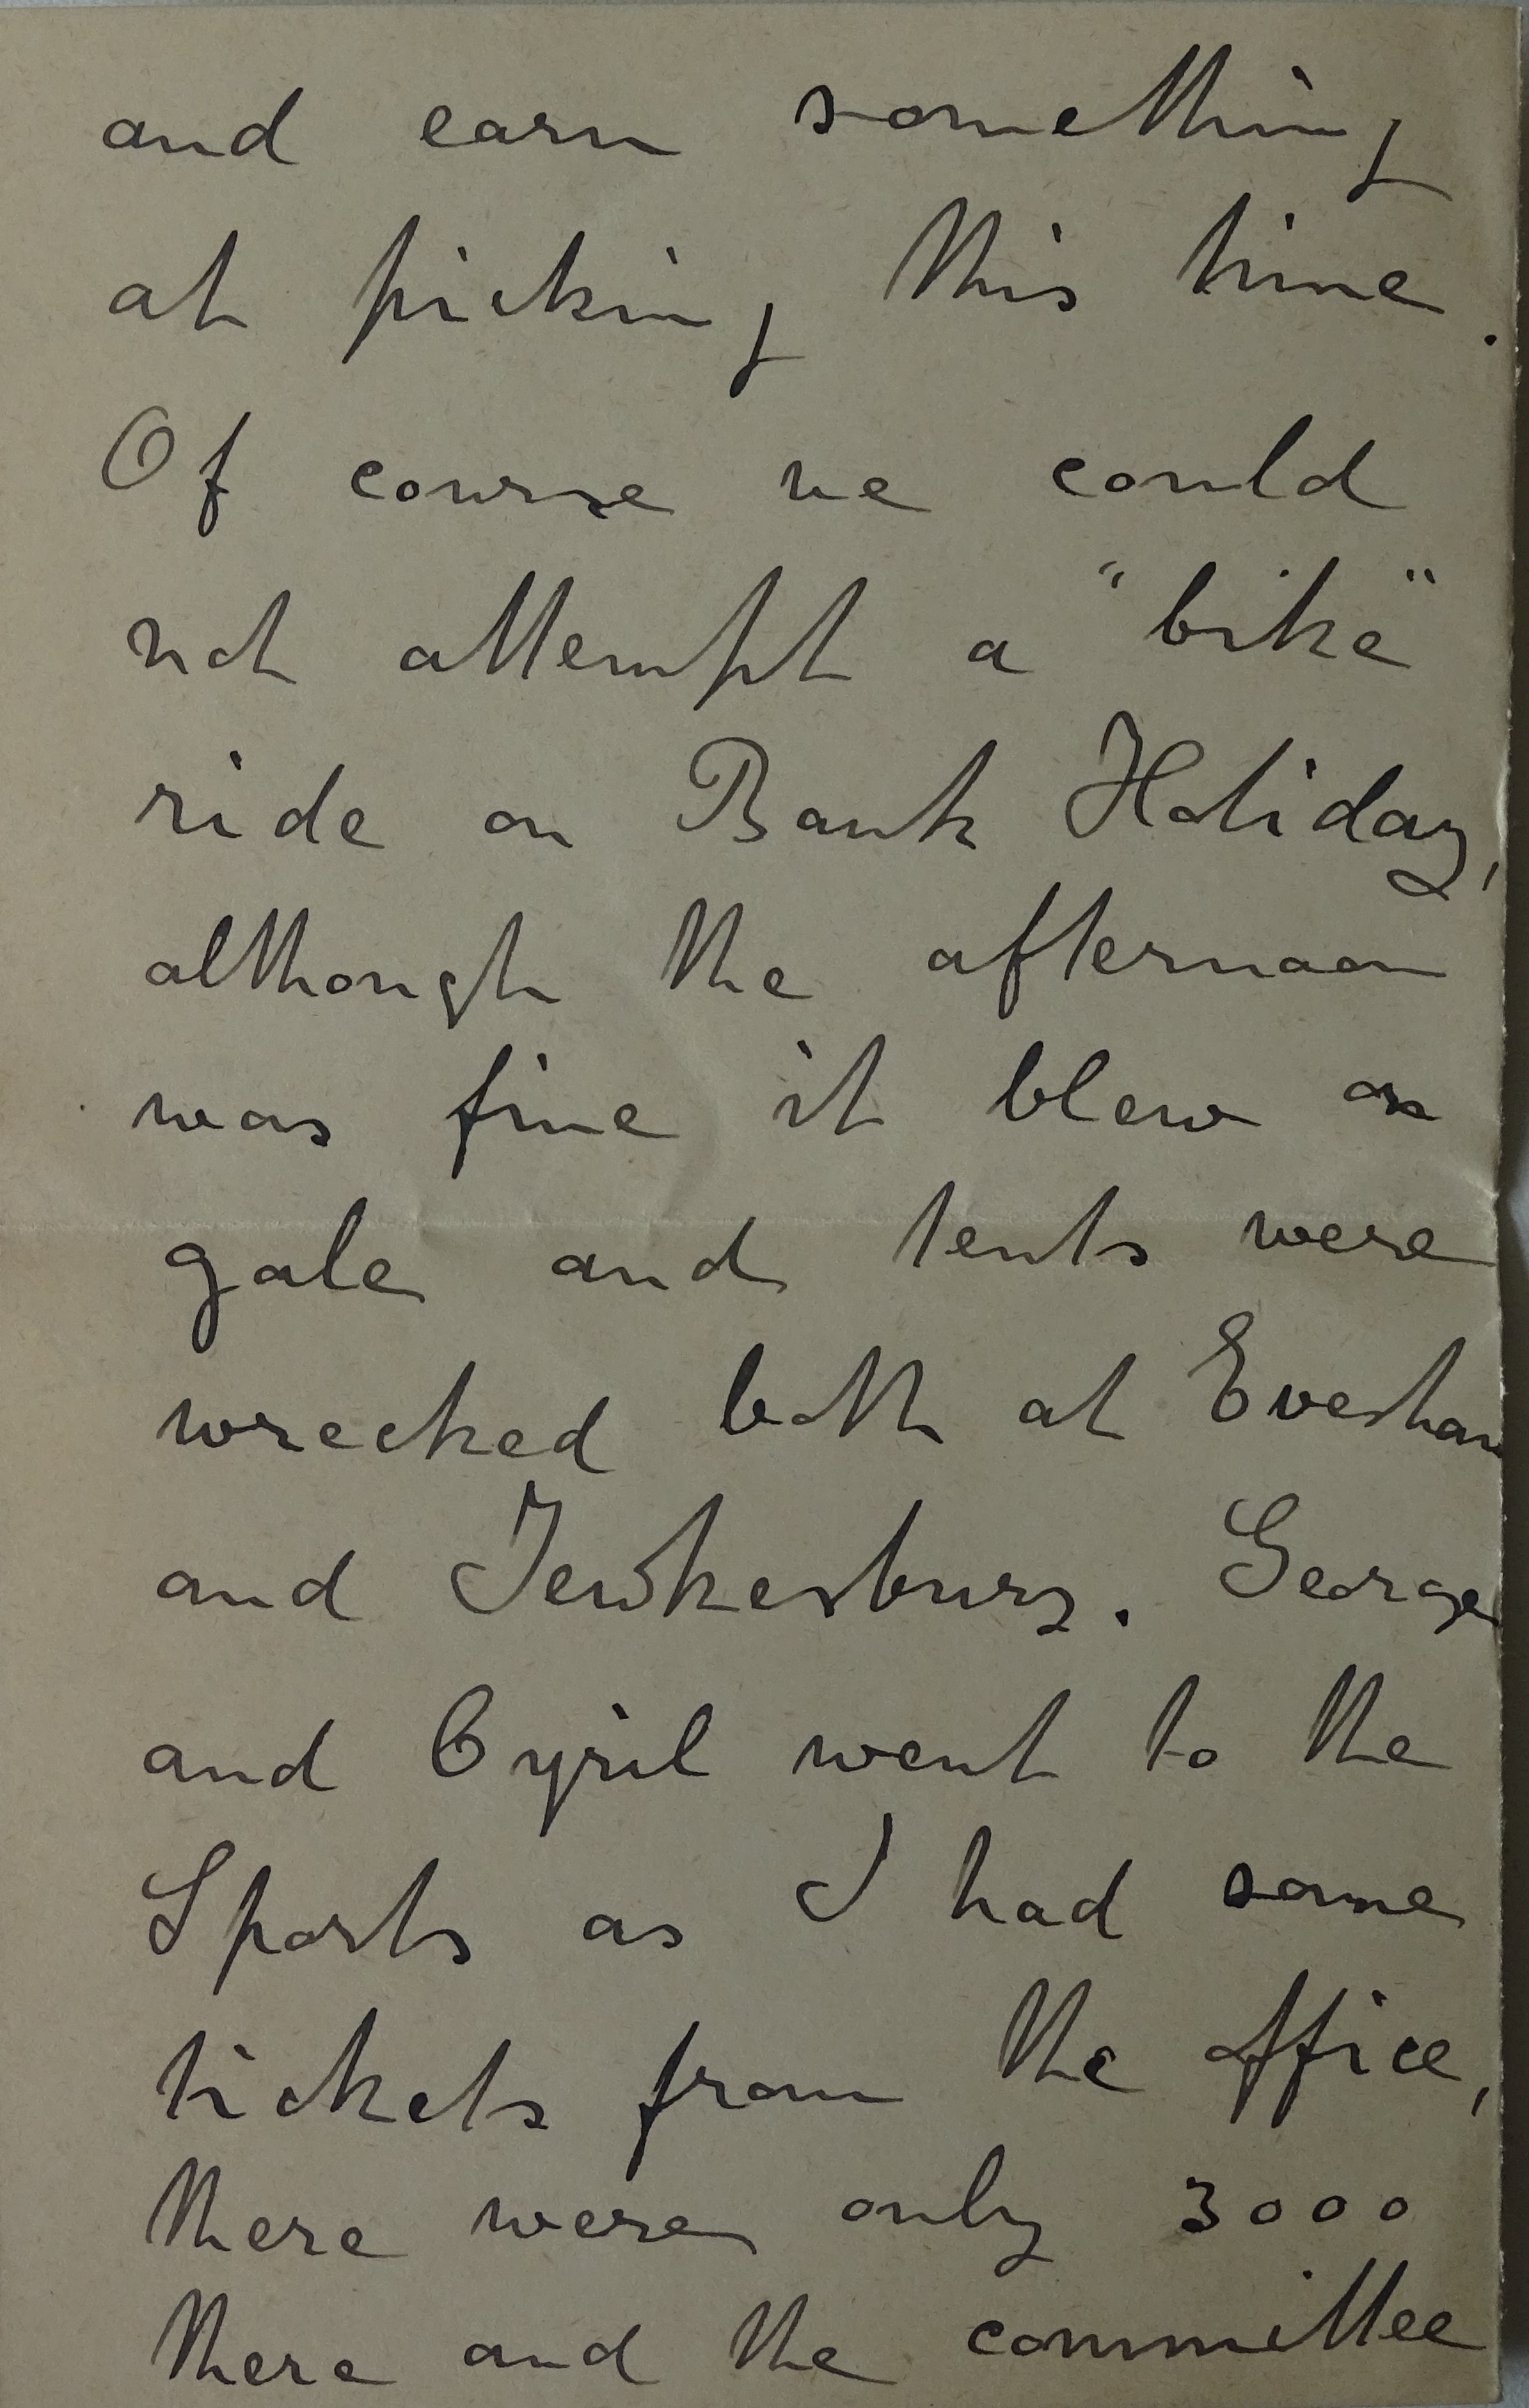 and earn something
at picking this time.
Of course we could
not attempt a "bike"
ride on Bank Holiday,
although the afternoon
was fine it blew a
gale and tents were
wrecked both at Evesham
and Tewkesbury. George
and Cyril went to the
Sports as I had some
tickets from the office,
there were only 3000
there and the committee